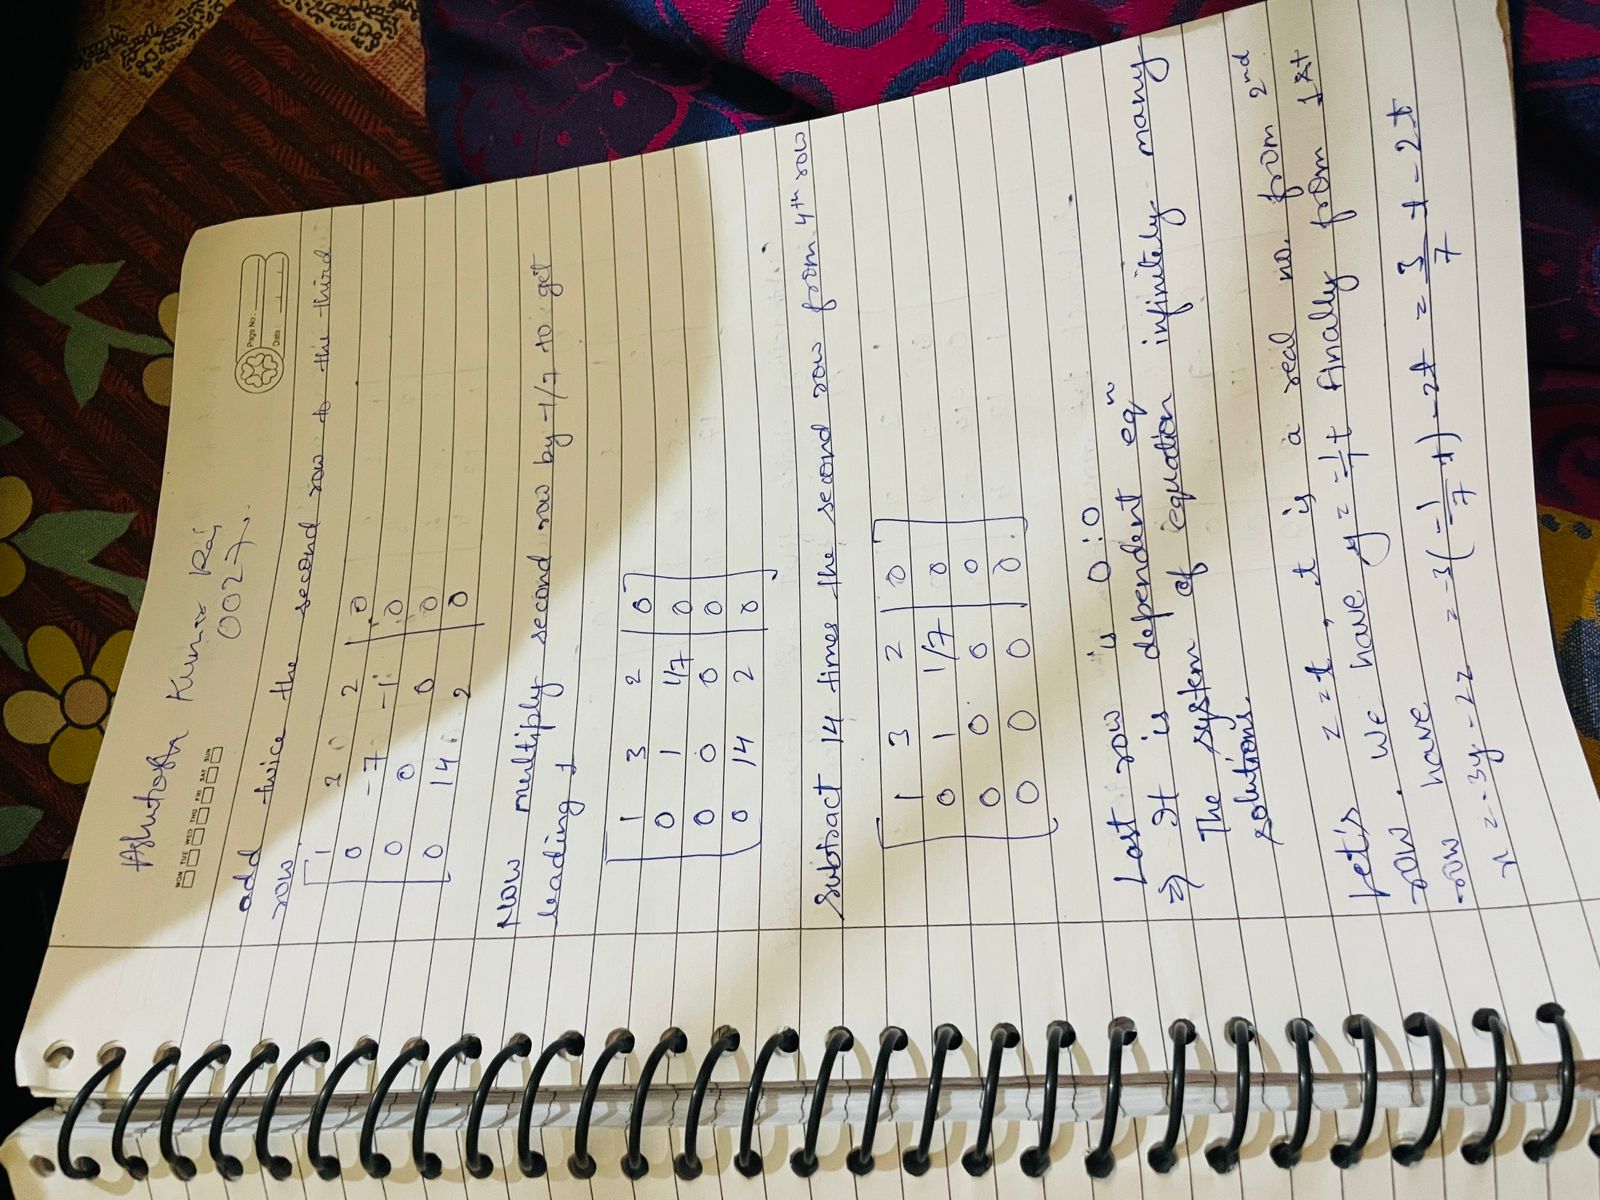 Ashutosh Kumar Raj
0027
Page No.:
Date:
MON TUE WED THU FRI SAT SUN
add twice the second row to the third
row.
1 3 2 | 0
0 -7 -1 | 0
0 0 0 | 0
0 14 2 | 0
Now multiply second row by -1/7 to get
leading 1
1 3 2 | 0
0 1 1/7 | 0
0 0 0 | 0
0 14 2 | 0
subtract 14 times the second row from 4th row
1 3 2 | 0
0 1 1/7 | 0
0 0 0 | 0
0 0 0 | 0
Last row is 0:0
=) It is dependent eqn
The system of equation infinitely many
solutions.
Let's z=t, t is a real no. from 2nd
row. we have y = -1/7 t finally from 1st
row have
x = -3y -2z = -3(-1/7 t) -2t = 3/7 t - 2t